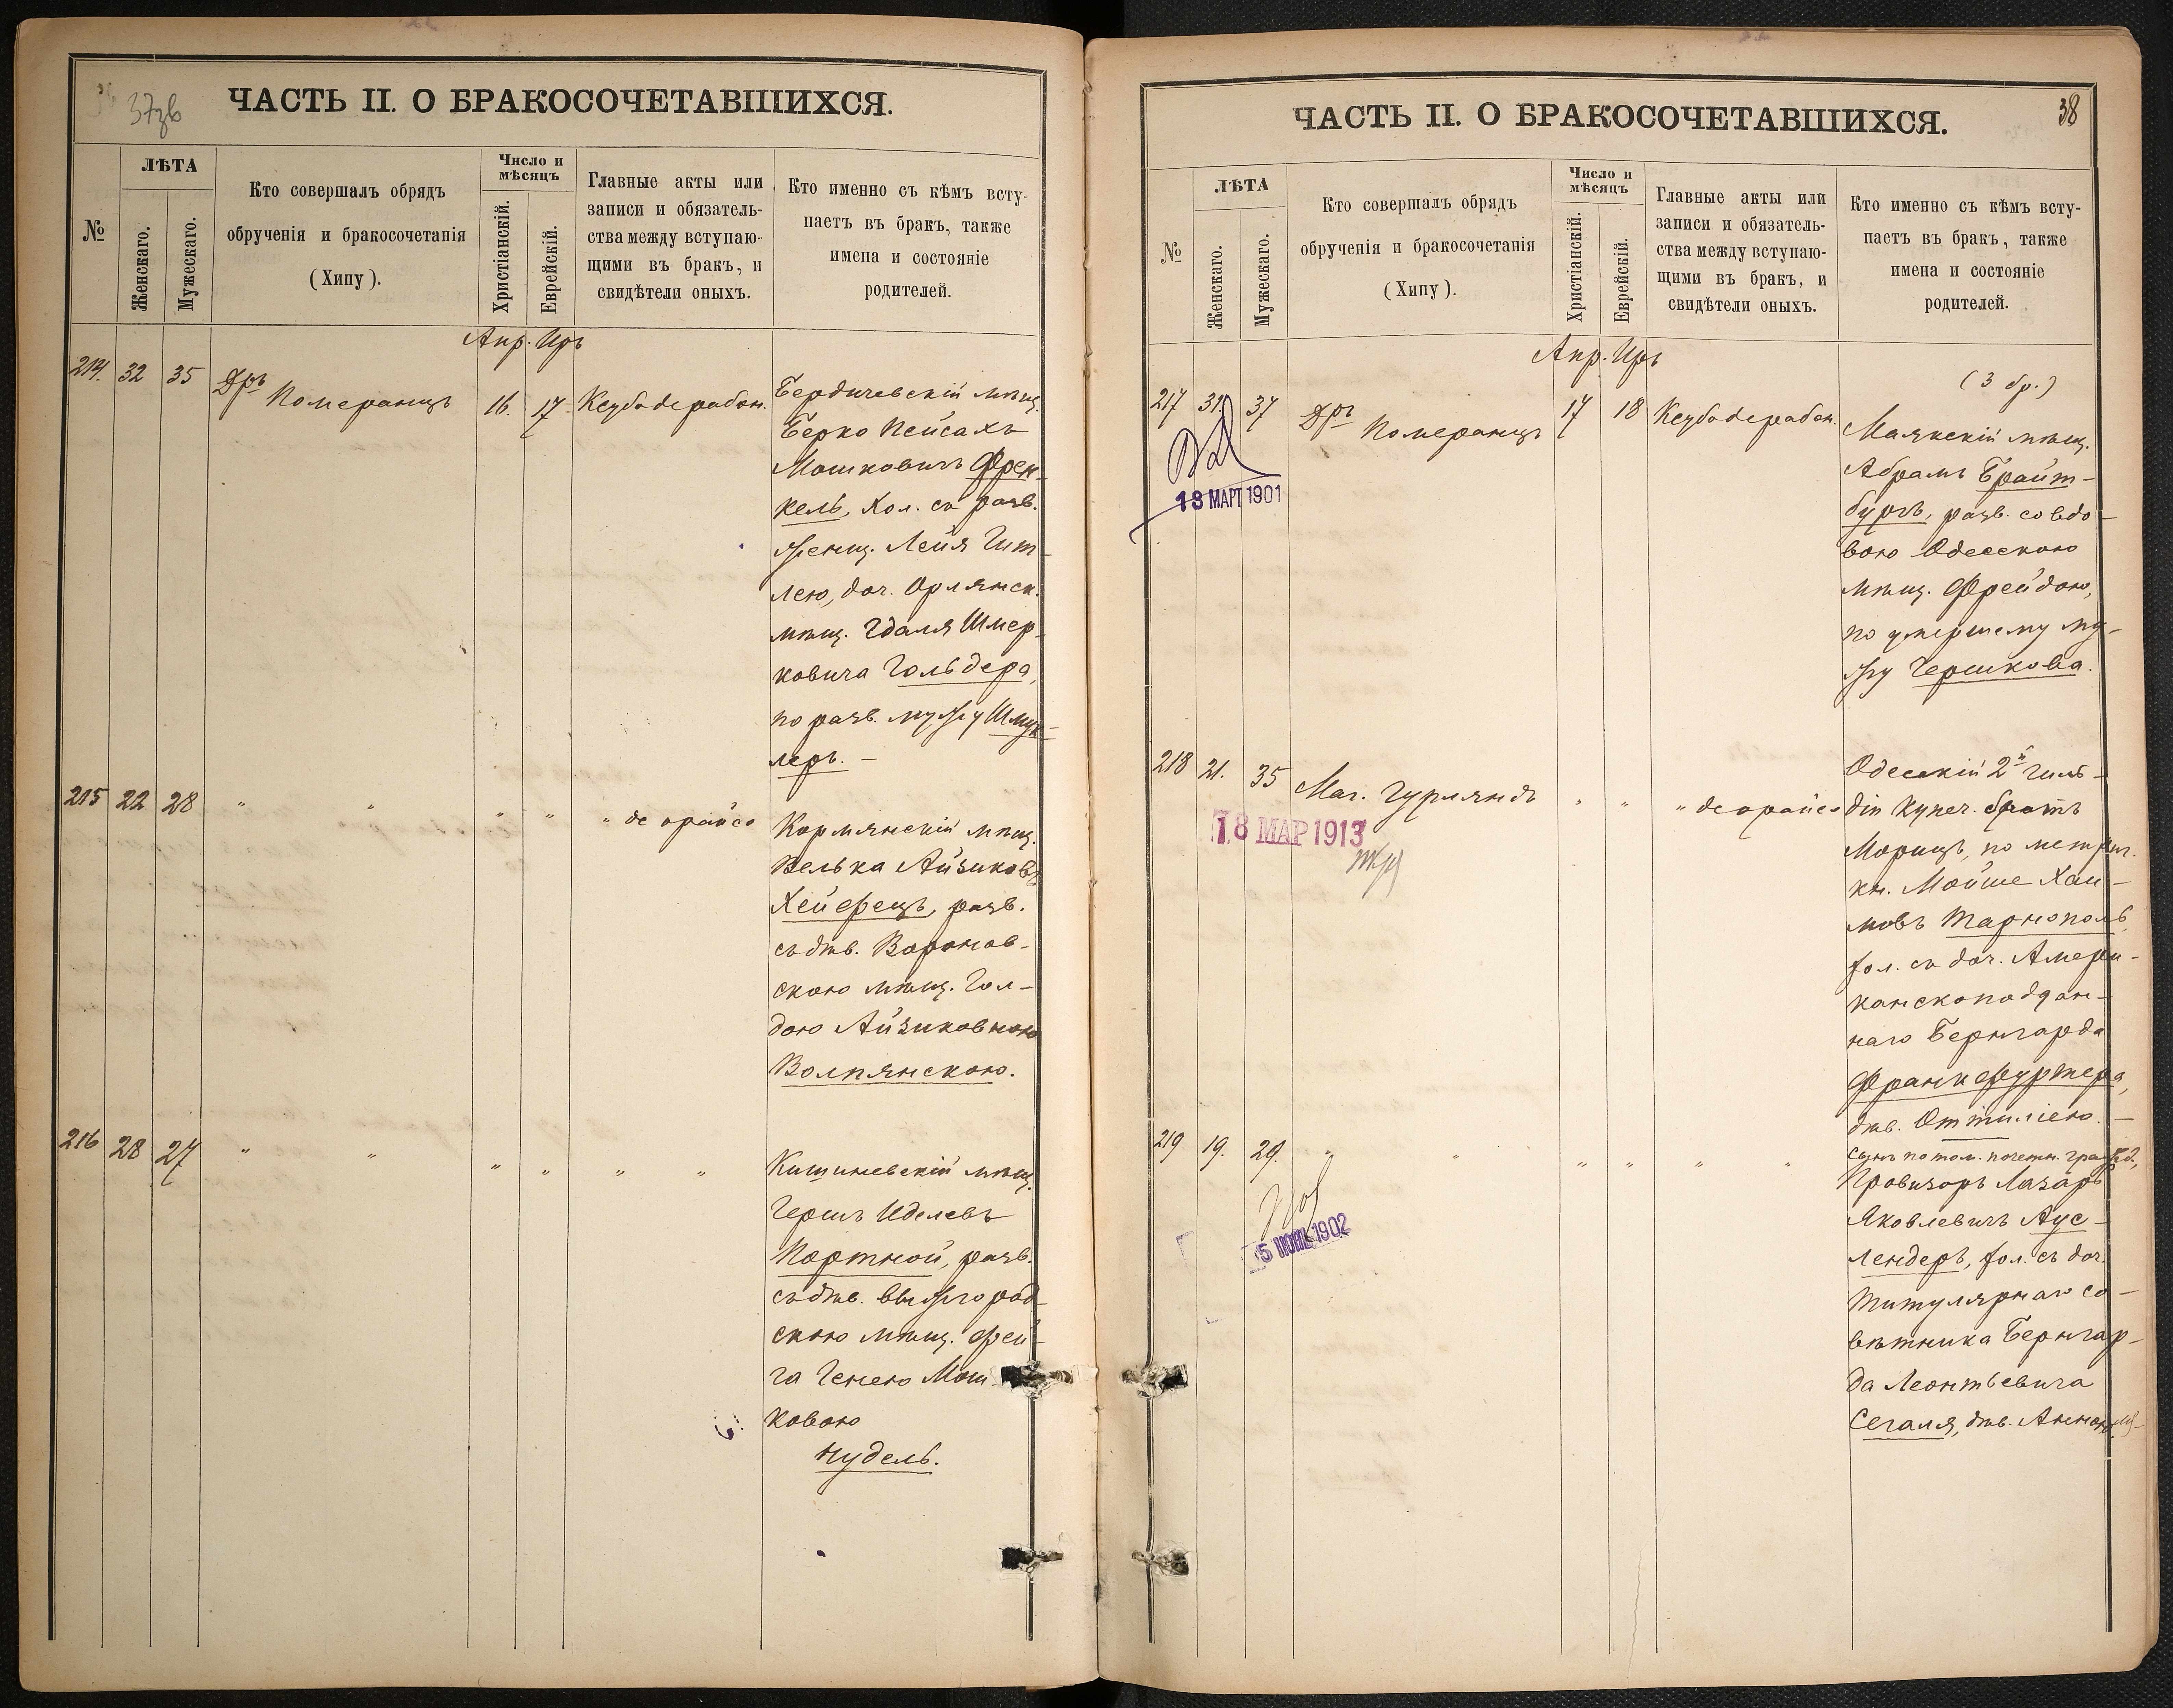 37зв
ЧАСТЬ II. О БРАКОСОЧЕТАВШИХСЯ.
№
ЛѢТА
Женскаго.
Мужескаго.
Кто совершалъ обрядъ
обрученія и бракосочетанія
(Хипу).
Число и
мѣсяцъ
Христіанскій.
Еврейскій.
Главные акты или
записи и обязатель-
ства между вступаю-
щими въ бракъ, и
свидѣтели оныхъ.
Кто именно съ кѣмъ всту-
паетъ въ бракъ, также
имена и состояніе
родителей.
Апр. Иръ
214. 32 35 Дръ Померанцъ 16. 17 Ксубоderабон.
Бердичевскій мѣщ.
Берко Пейсахъ
Мошковичъ Френ-
кель, хол. съ разв.
женщ. Лейя Гит-
лею, доч. Орлянск.
мѣщ. Гдаля Шмер-
ковича Гольдера,
по разв. мужу Шмук-
леръ. —
215 22 28 " " " " " де орайсо
Кормянскій мѣщ.
Велька Айзиковъ
Хейфецъ, разв.
съ дѣв. Воронов-
скою мѣщ. Гол-
дою Айзиковною
Волпянскою.
216 28 27 " " " " " "
Кишиневскій мѣщ.
Гершъ Иделевъ
Портной, разв.
съ дѣв. Вышгород-
скою мѣщ. Фей-
га Генею Мош-
ковою
Нудель.
38
ЧАСТЬ II. О БРАКОСОЧЕТАВШИХСЯ.
№
ЛѢТА
Женскаго.
Мужескаго.
Кто совершалъ обрядъ
обрученія и бракосочетанія
(Хипу).
Число и
мѣсяцъ
Христіанскій.
Еврейскій.
Главные акты или
записи и обязатель-
ства между вступаю-
щими въ бракъ, и
свидѣтели оныхъ.
Кто именно съ кѣмъ всту-
паетъ въ бракъ, также
имена и состояніе
родителей.
Апр. Иръ
217 31. 37 Дръ Померанцъ 17 18 Ксубо де рабон.
13 МАРТ 1901
(3 бр.)
Маякскій мѣщ.
Абрамъ Брайт-
бургъ, разв. со вдо-
вою Одесскою
мѣщ. Фрейдою,
по умершему му-
жу Гершкова.
218 21. 35 Маг. Гурляндъ " " " де орайсо
18 МАР 1913
Одесскій 2й гиль-
діи купеч. братъ
Морицъ, по метрич.
кн. Мойше Хаи-
мовъ Тарнополь,
хол. съ доч. Амери-
канскоподдан-
наго Бернгарда
Франкфуртера,
дѣв. Оттиліею. —
219 19. 29. " " " " " "
5 ИЮНЬ 1902
Сынъ потом. почетн. гражд.,
Провизоръ Лазарь
Яковлевичъ Аус-
лендеръ, хол. съ доч.
Титулярнаго со-
вѣтника Бернгар-
да Леонтьевича
Сегаля, дѣв. Анною.